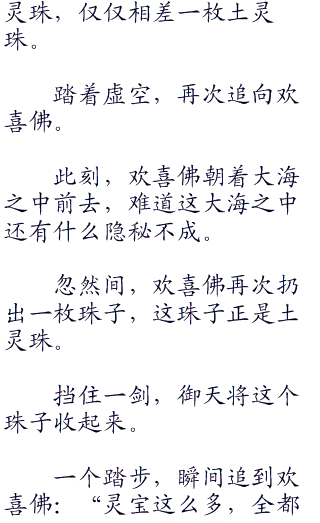 灵珠，仅仅相差一枚土灵
珠。
踏着虚空，再次追向欢
喜佛。
此刻，欢喜佛朝着大海
之中前去，难道这大海之中
还有什么隐秘不成。
忽然间，欢喜佛再次扔
出一枚珠子，这珠子正是土
灵珠。
挡住一剑，御天将这个
珠子收起来。
一个踏步，瞬间追到欢
喜佛：“灵宝这么多，全都